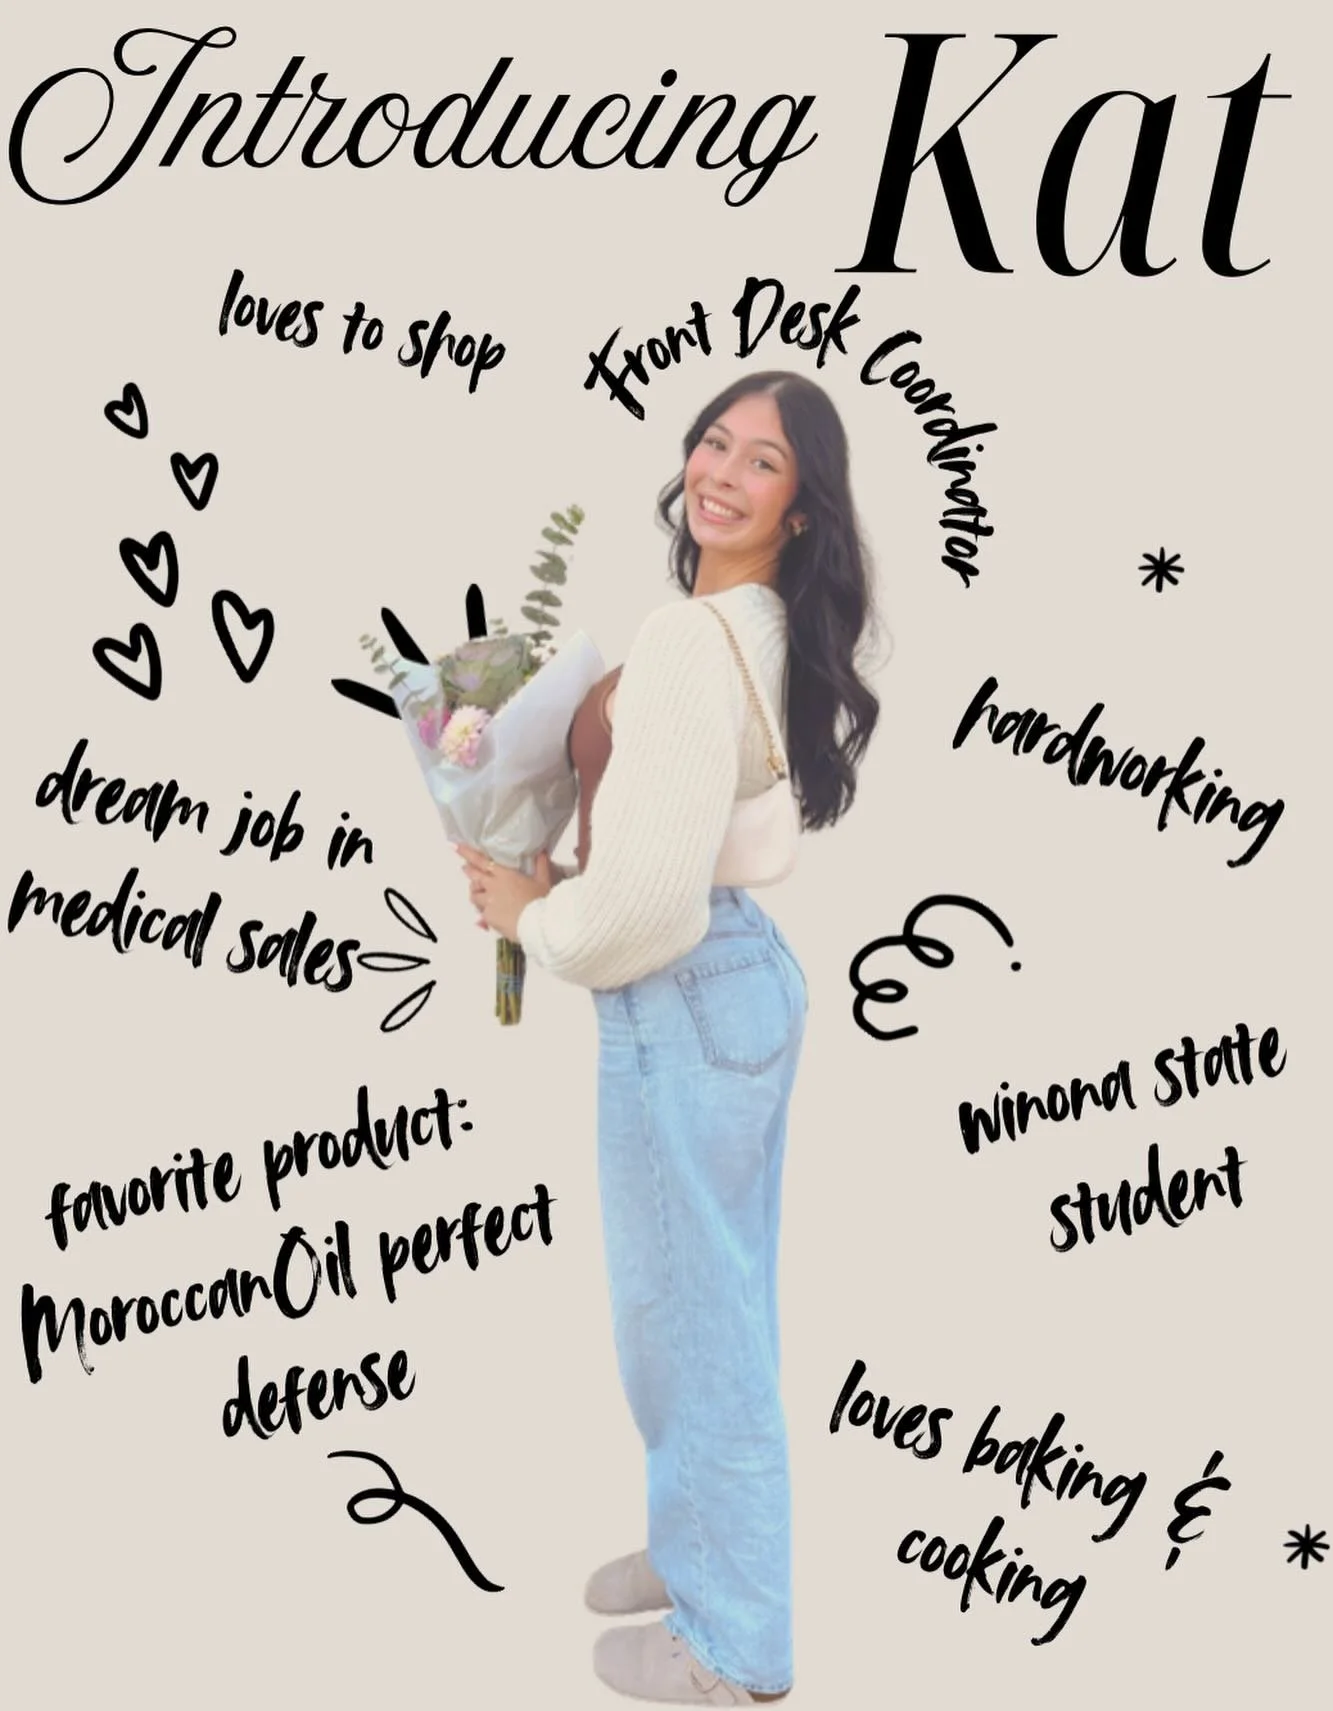 Introducing Kat
loves to shop
Front Desk Coordinator
hardworking
dream job in
medical sales
winona state
student
favorite product:
MoroccanOil perfect
defense
loves baking &
cooking